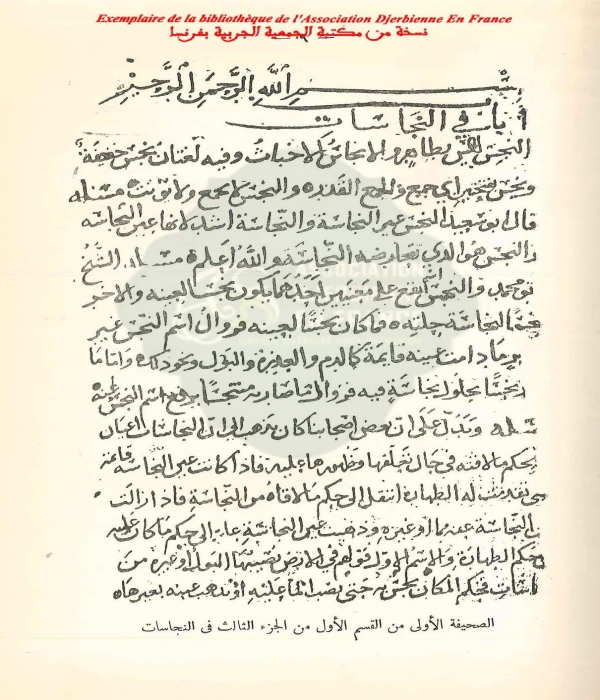 Exemplaire de la bibliothèque de l'Association Djerbienne En France
نسخة من مكتبة الجمعية الجربية بفرنسا
بسم الله الرحمن الرحيم
باب في النجاسات
النجس ليس بطاهر والانجاس الاخباث وفيه لغتان نجس خفيفة
ونجس والنجس لا يجمع ولا يؤنث مسئلة
قال ابو سعيد النجس غير النجاسة والنجاسة اشد لانها عين النجاسة
والنجس هو الذي تعارضه النجاسة والله اعلم مسئلة الشيخ
ابو محمد والنجس يقع على معنيين احدهما يكون نجسا لعينه والاخر
النجاسة فما كان نجسا لعينه فزوال اسم النجس عنه غير
ما دامت عينه قايمة كالدم والعذرة والبول ونحو ذلك واما ما
نجسا بحلول نجاسة فيه فزوال ما صار به متنجسا يرفع اسم النجس عنه
مسئلة ويدل على ان بعض اصحابنا كان يذهب الى ان النجاسات اعيان
يحكم ما لاقته في حال وظهورها عليه فاذا كانت عين النجاسة قايمة
تقدمت له الطهارة انتقل الى حكم ما لاقاه من النجاسة فاذا زالت
النجاسة عنه بماء او غيره وذهبت عين النجاسة عاد الى حكم ما كان عليه
حكم الطهارة والاسم الاول فقولهم في الارض يصيبها البول او غيره من
فحكم المكان نجس حتى يصب الماء عليه او تذهب عينه بغيرها
الصحيفة الأولى من القسم الأول من الجزء الثالث فى النجاسات
ASSOCIATION